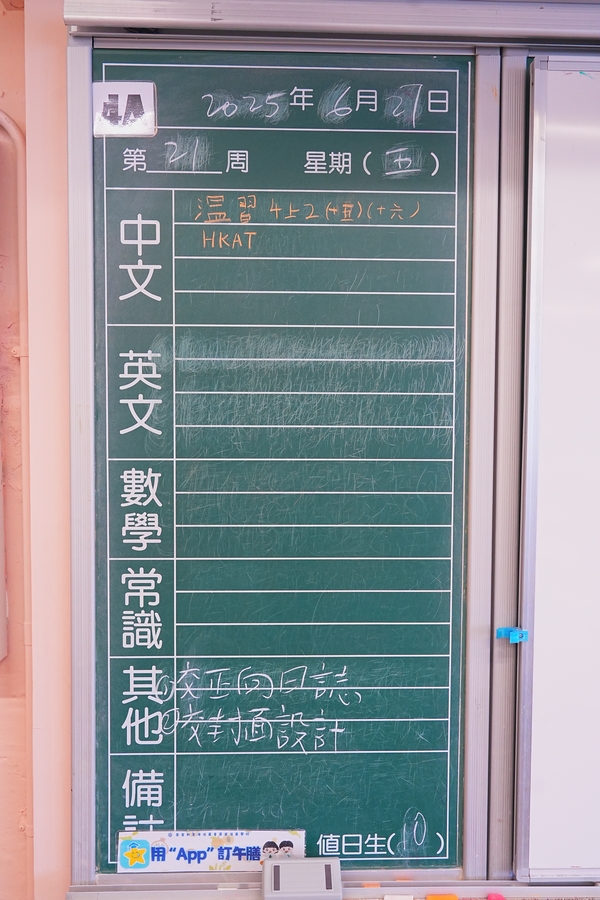 4A
2025年6月27日
第21周 星期(五)
中文
温習 4上2 (十五)(十六)
HKAT
英文
數學
常識
其他
①交正向日誌
②交封面設計
備註
用“App”訂午膳
值日生(10)